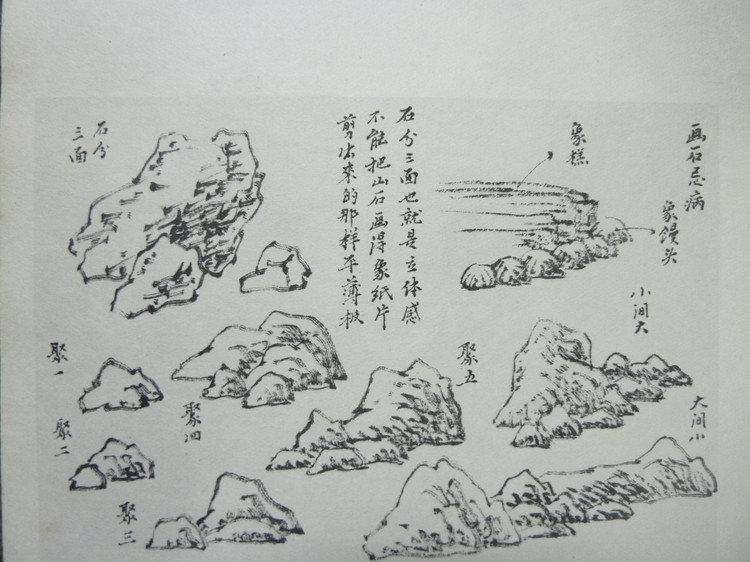 画石忌病
象馒头
象糕
石分三面也就是立体感
不能把山石画得象纸片
剪出来的那样平薄板
石分
三面
小间大
大间小
聚五
聚四
聚一
聚二
聚三